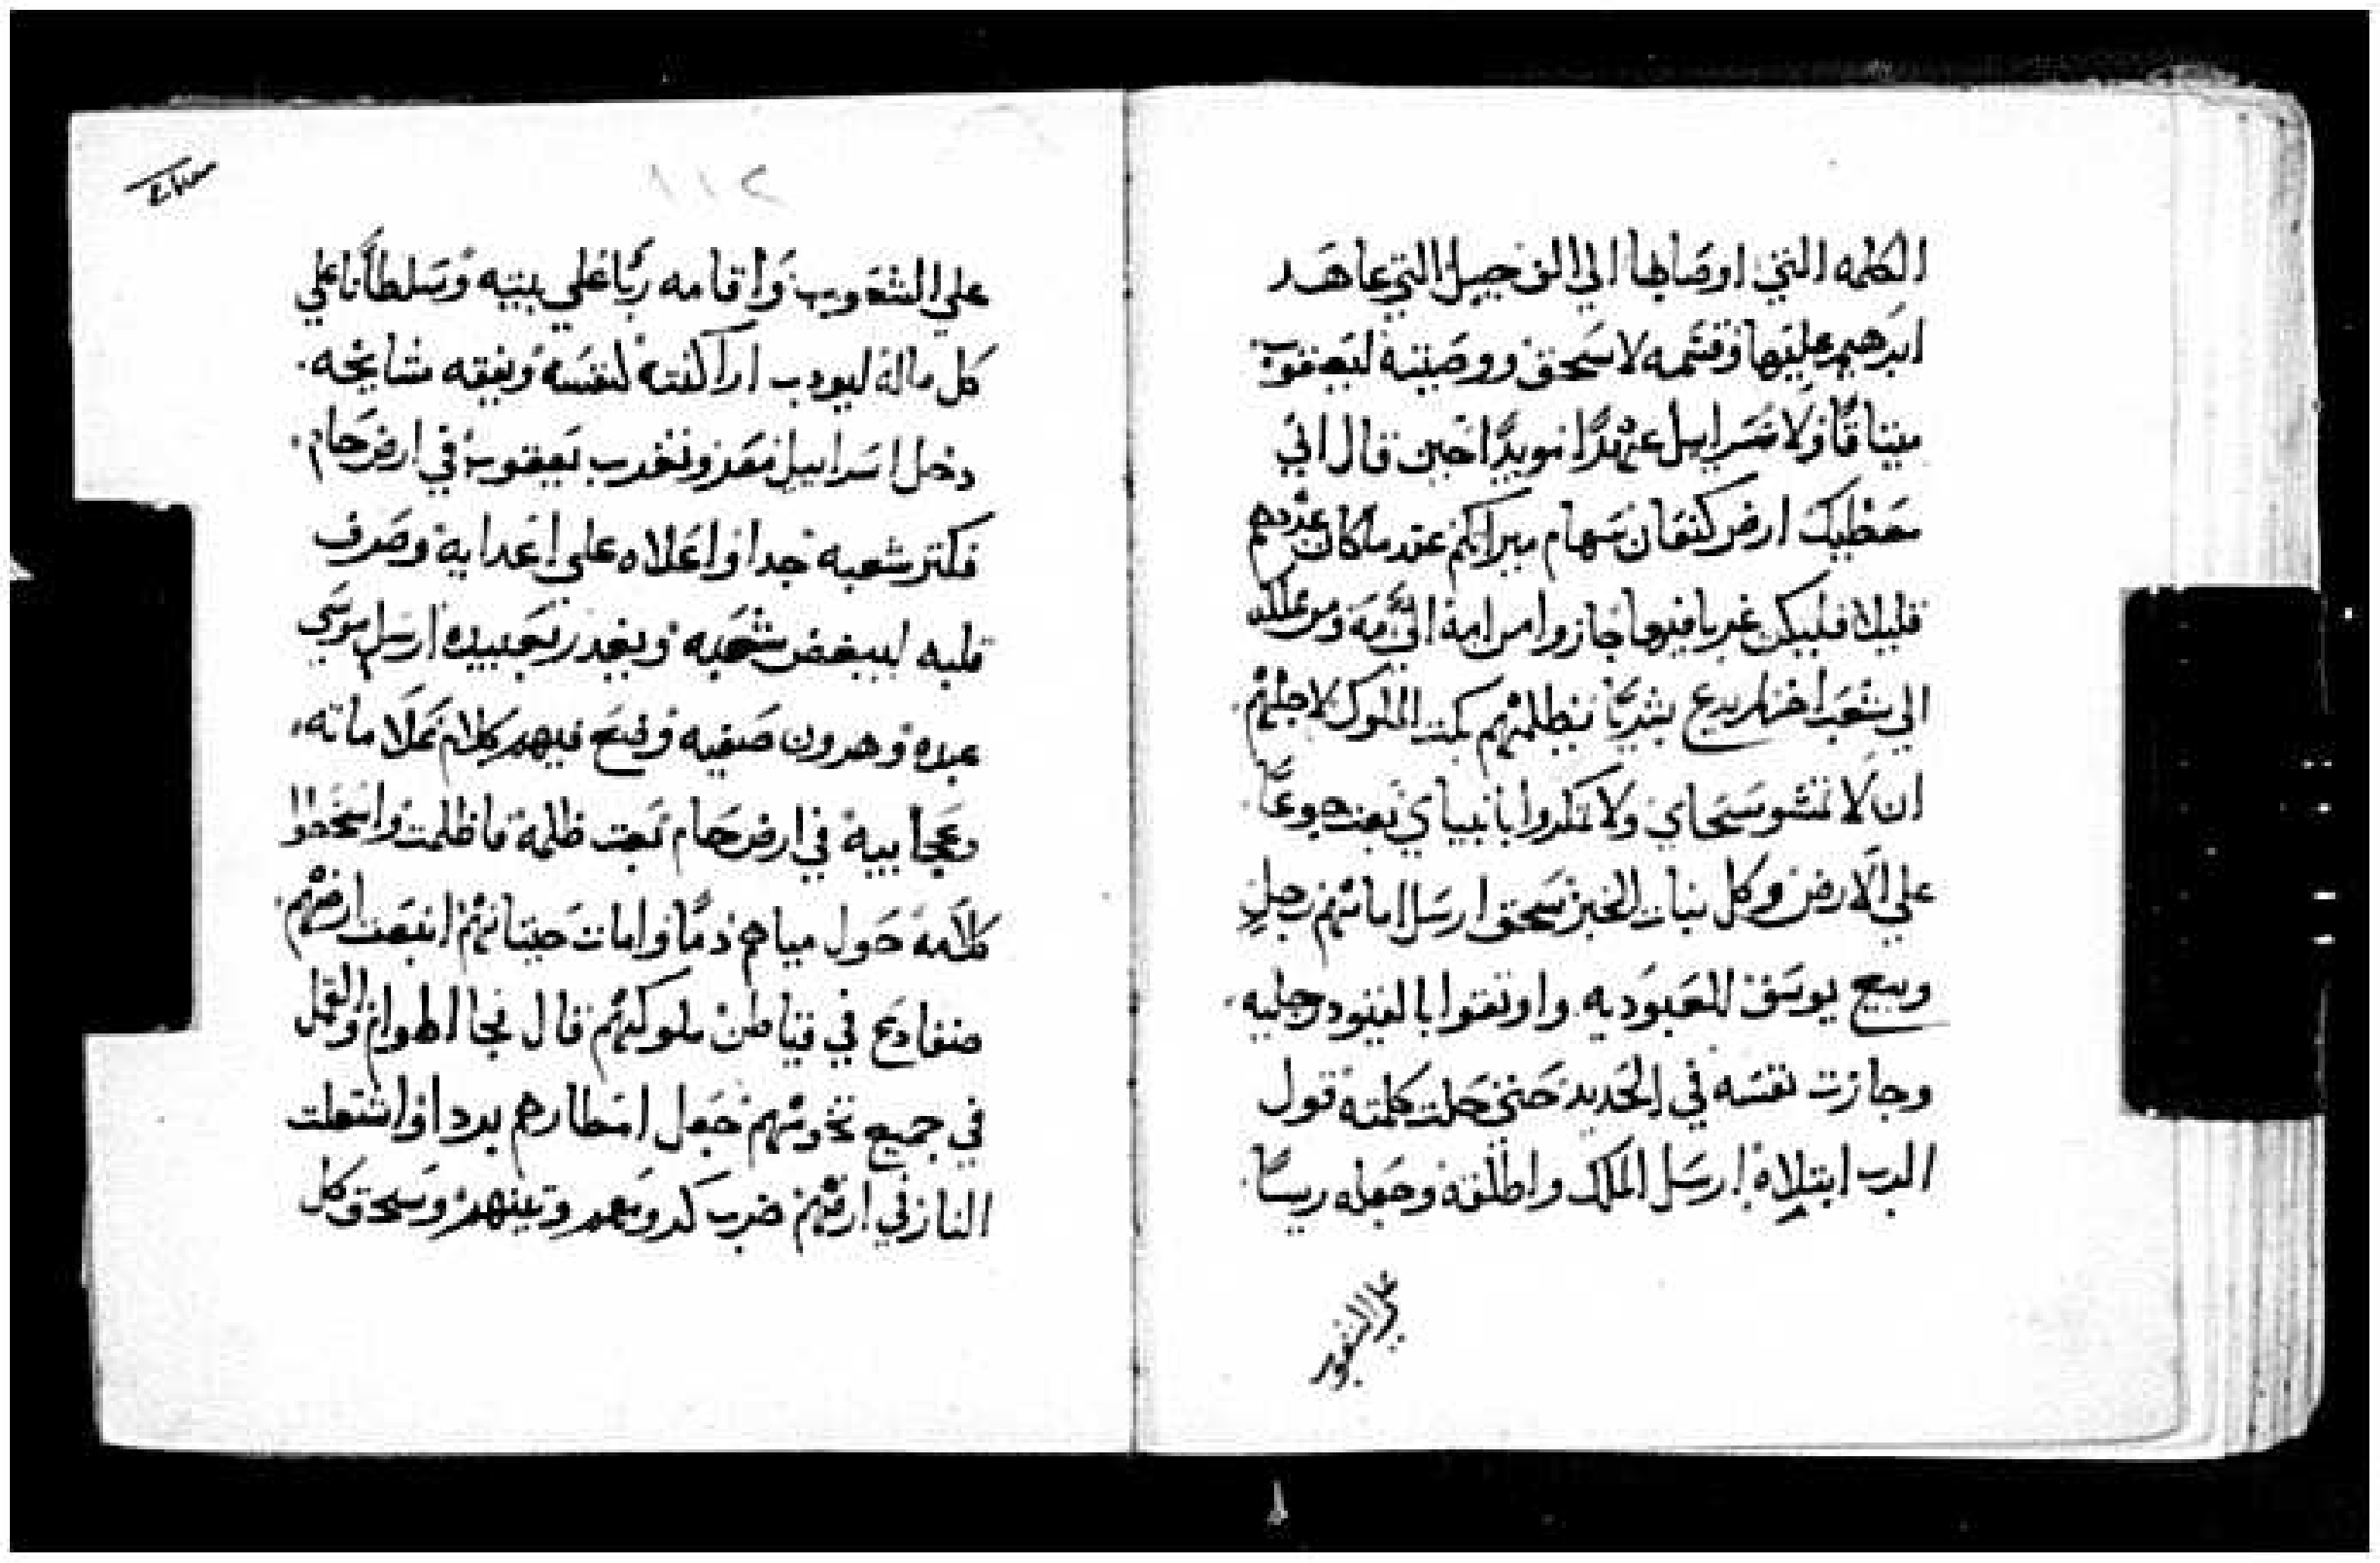 الكلمه التي اوصابها الي الف جيل التي عاهد
ابرهيم عليها وقسمه لاسحق ووصيته ليعقوب
ميتاقا ولاسراييل عهدا مويدا حين قال اني
معطيك ارض كنعان سهام ميراتكم عندما كان عددهم
قليلا فليكن غربا فيها جازوا من امة الي امة ومن مملكه
الي شعب اخر لم يدع بشريا يظلمهم بكت الملوك لاجلهم
ان لا تمسو مسحاي ولا تمكروا بانبياي بعت جوعا
علي الارض وكل نبات الخبز سحق ارسل امامهم رجل
وبيع يوسف للعبوديه واوتقوا بالقيود رجليه
وجازت نفسه في الحديد حتي حلت كلمته قول
الرب ابتلاه ارسل الملك واطلقه وجعله ريسا
علي الشعوب
١١٢
علي الشعوب واقامه ربا علي بيته وسلطانا علي
كل ماله ليودب اراكنته كنفسه ويفقه مشايخه
دخل اسراييل مصر وتغرب يعقوب في ارض حام
فكتر شعبه جدا واعلاه علي اعدايه وصرف
قلبه ليبغض شعبه ويغدر بعبيده ارسل موسي
عبده وهرون صفيه وضع فيهم كلام علاماته
وعجايبه في ارض حام بعت ظلمة فاظلمت واسخطوا
كلامه حول مياههم دما وامات حيتانهم انبعت ارضهم
ضفادع في قياطن ملوكهم قال فجا الهوام والقمل
في جميع تخومهم جعل امطارهم بردا واشتعلت
النار في ارضهم ضرب كرومهم وتينهم وسحق كل